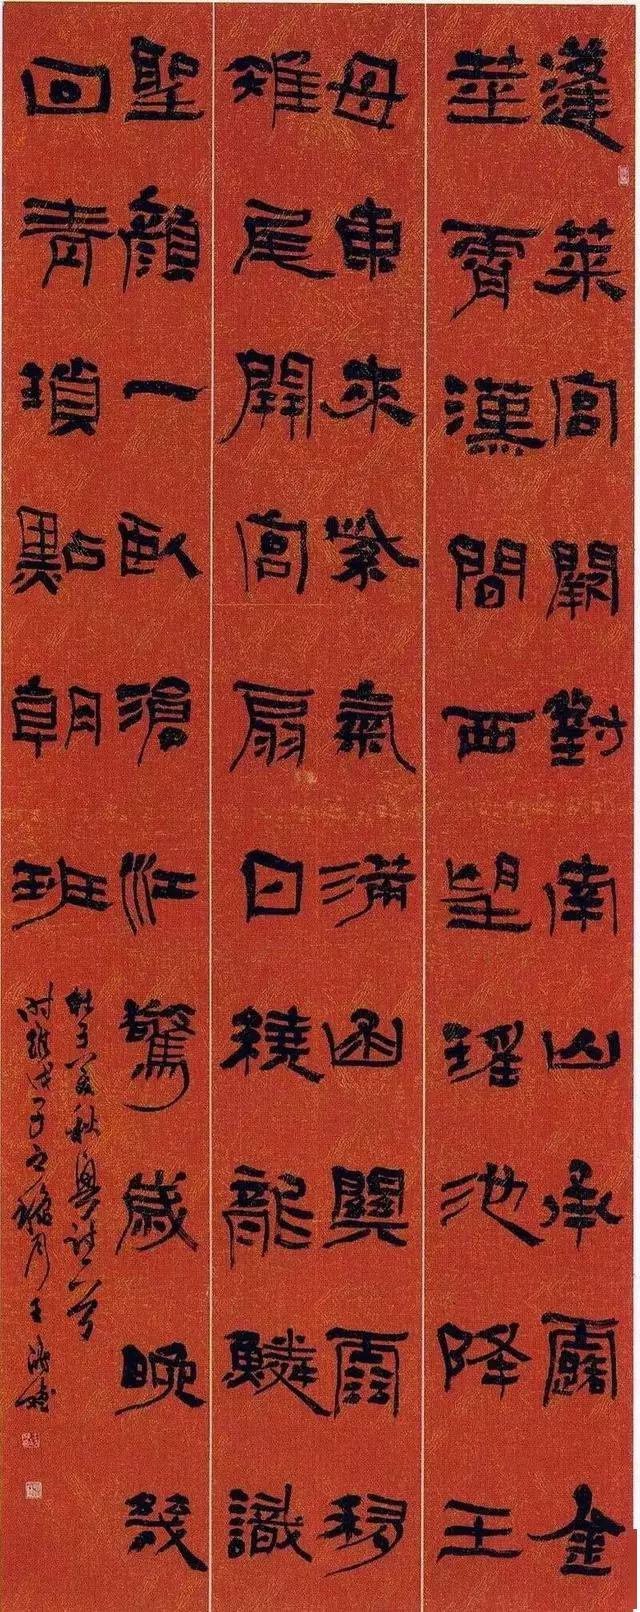 蓬萊宮闕對南山承露金
莖霄漢間西望瑤池降王
母東來紫氣滿函關雲移
雉尾開宮扇日繞龍鱗識
聖顏一臥滄江驚歲晚幾
回青瑣點朝班
杜子美秋興詩一首
時維戊子之月王